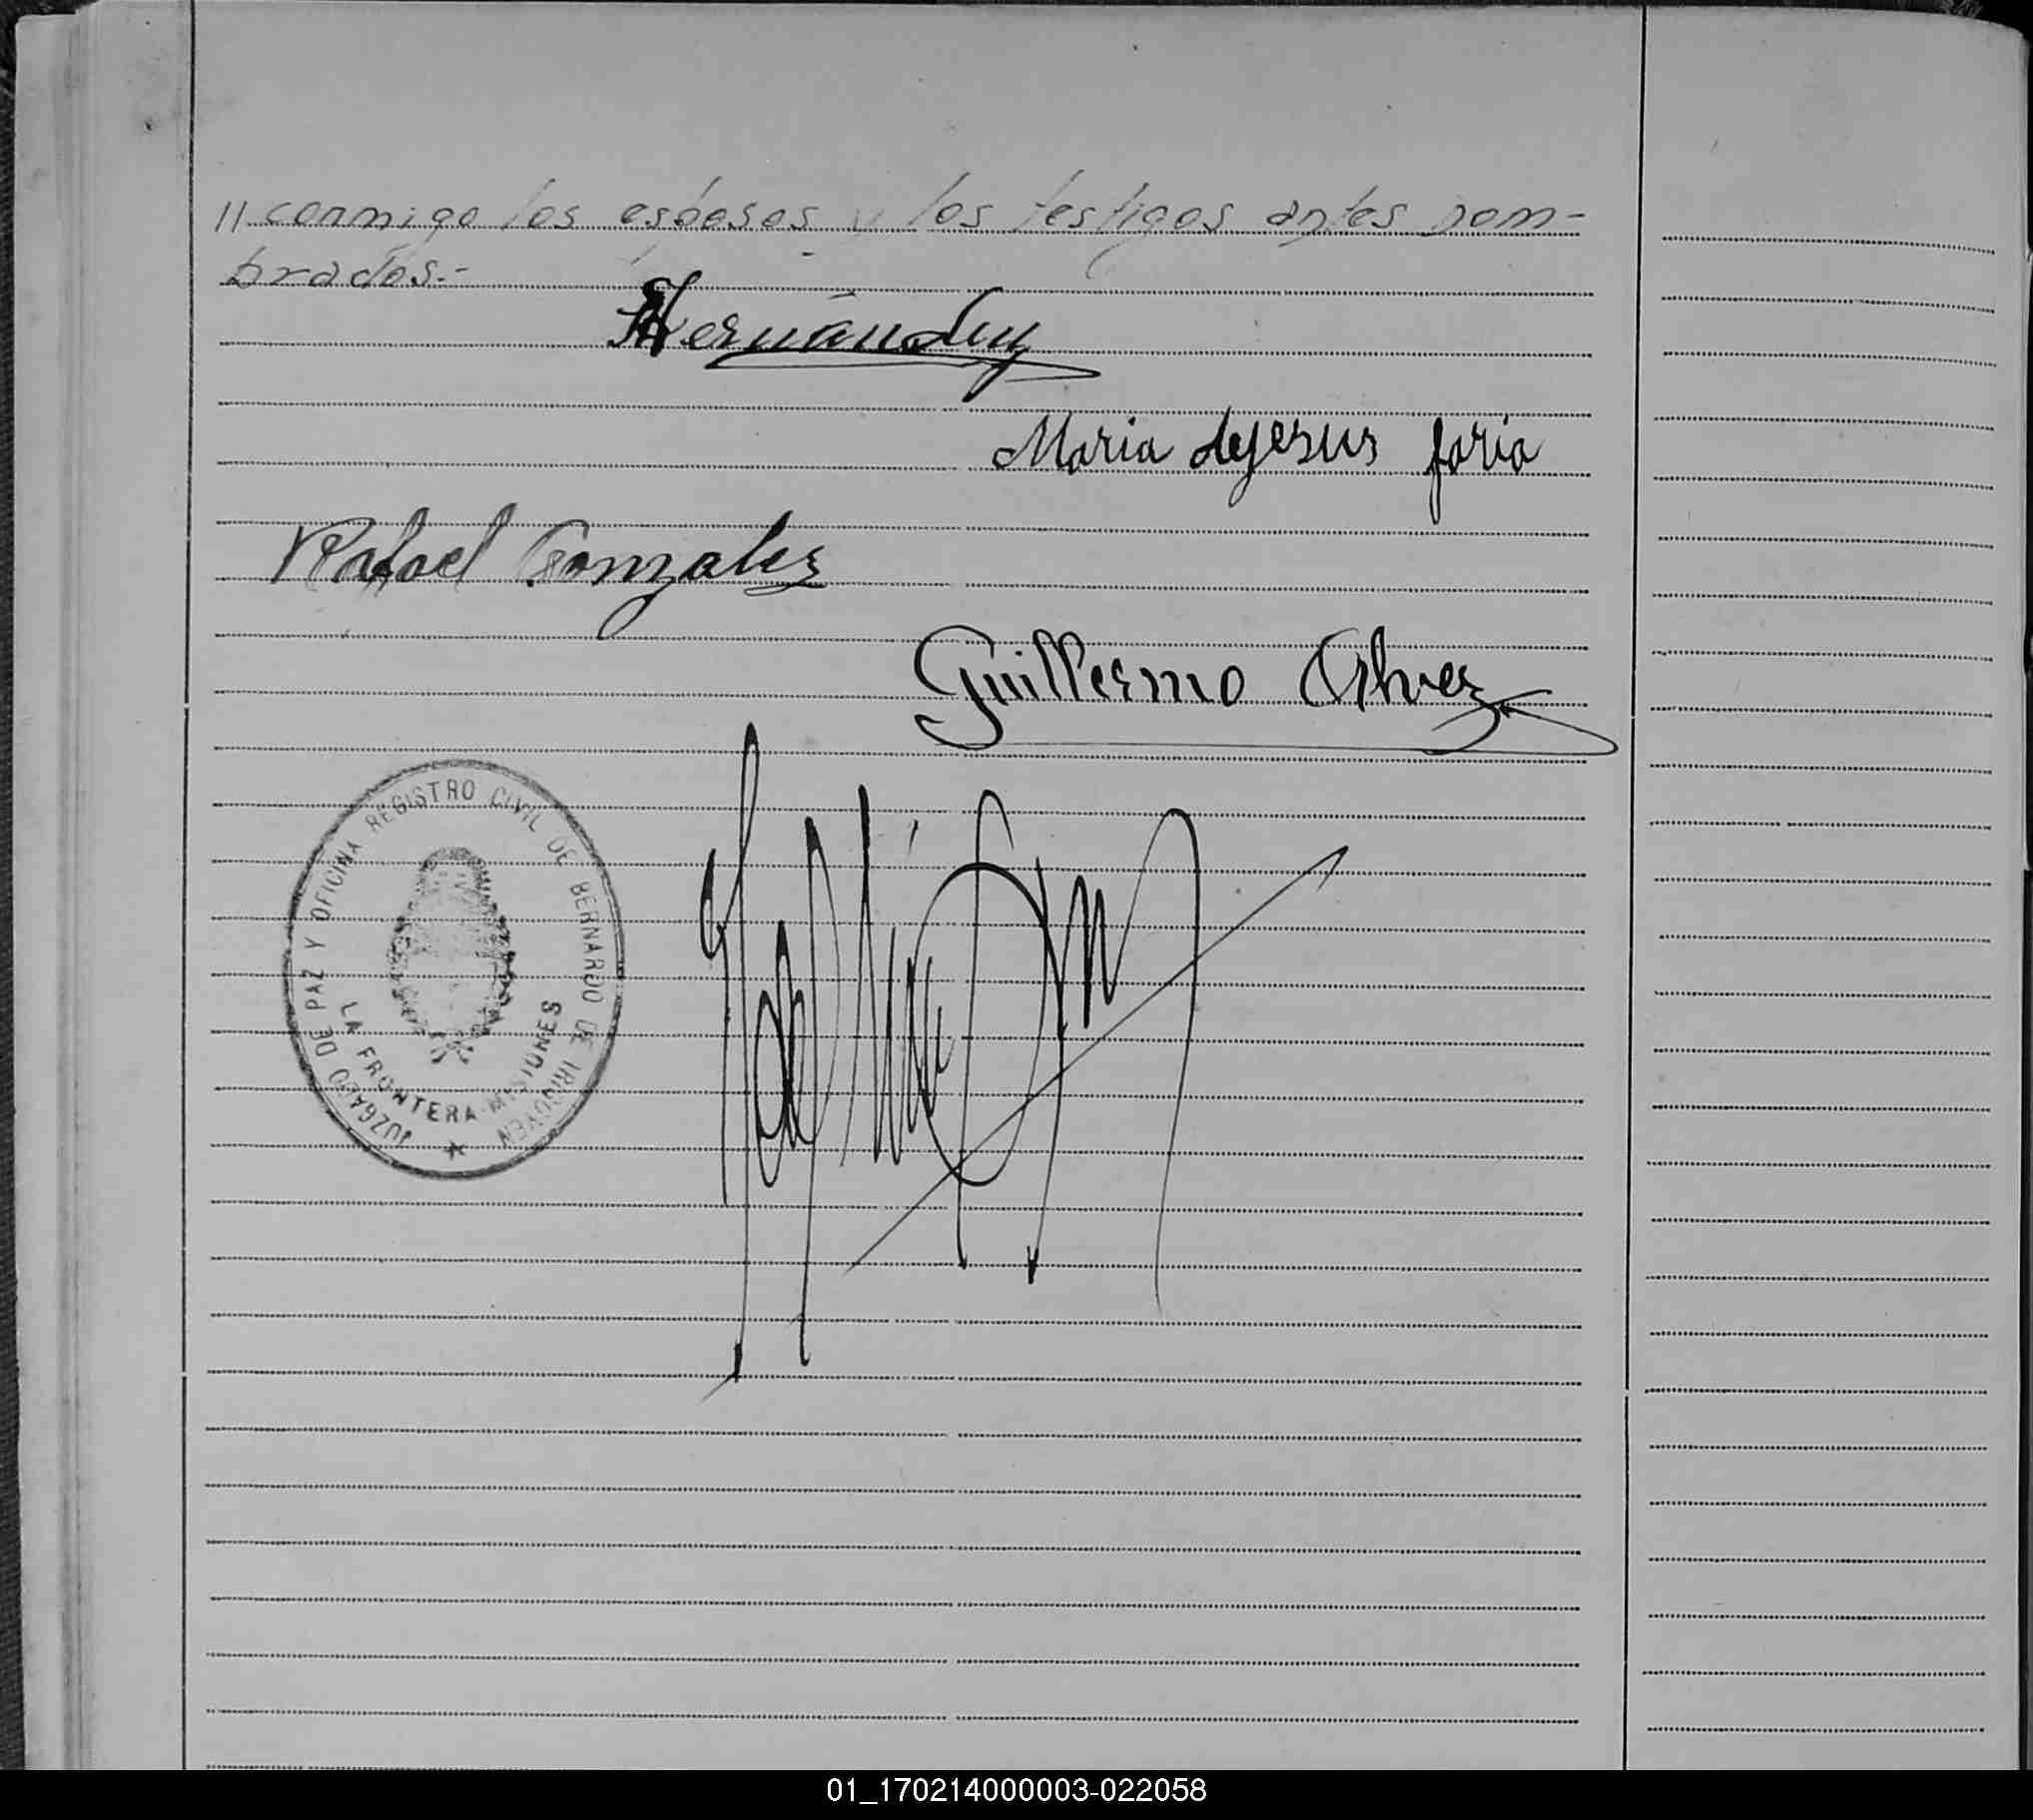 // conmigo los esposos y los testigos antes nom-
brados.-
Hernandez
Maria dejesus faria
Rafael Gonzalez
Guillermo Alvez
JUZGADO DE PAZ Y OFICINA REGISTRO CIVIL DE BERNARDO DE IRIGOYEN
LA FRONTERA-MISIONES
01_170214000003-022058